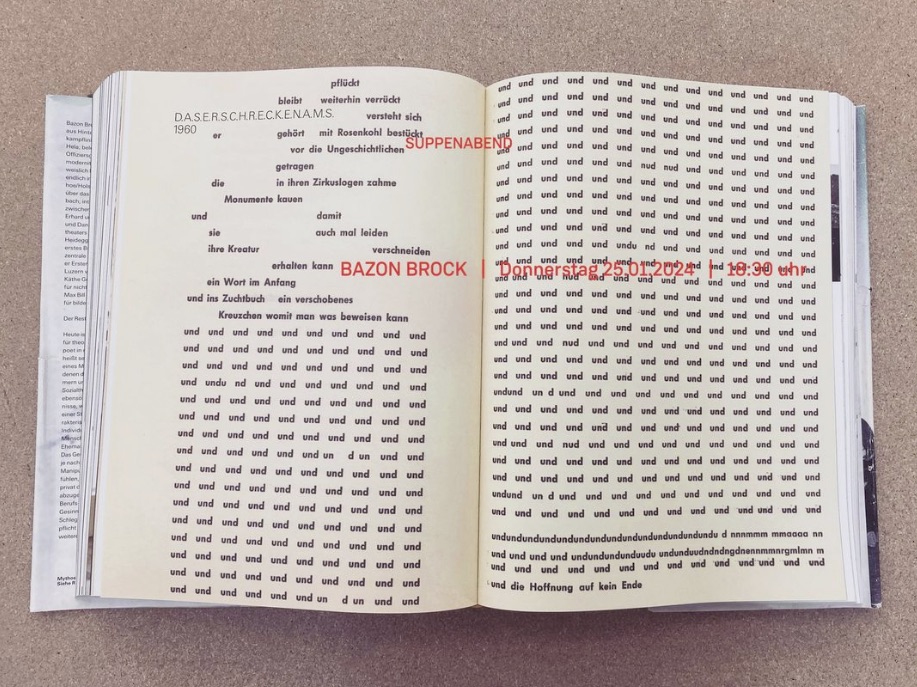 pflückt
bleibt weiterhin verrückt
D.A.S.E.R.S.C.H.R.E.C.K.E.N.A.M.S. versteht sich
1960
er gehört mit Rosenkohl bestückt
SUPPENABEND
vor die Ungeschichtlichen
getragen
die in ihren Zirkuslogen zahme
Monumente kauen
und damit
sie auch mal leiden
ihre Kreatur verschneiden
erhalten kann
BAZON BROCK | Donnerstag 25.01.2024 | 18:30 uhr
ein Wort im Anfang
und ins Zuchtbuch ein verschobenes
Kreuzchen womit man was beweisen kann
und und und und und und und und und
und und und und und und und und und
und und und und und und und und und
und undu nd und und und und und und
und und und und und und und und und
und und und und und und und und und
und und und und und und und und und
und und und und und un d un und und
und und und und und und und und und
und und und und und und und und und
und und und und und und und und und
und und und und und und und und und
und und und und und und und und und
und und und und und und und und und
und und und und und und und und und
und und und und und un d un und und
und und und und und und und und und und und und
und und und und und und und und und und und und
und und und und und und und und und und und und
und und und und und und und und und und und und
und und und und und und und und und und und und
und und und und und nud und und und und und
und und und und und und und und und und und und
und und und und und und und und und und und und
und und und und und und und und und und und und
und und und und und und und und und und und und
und und und und und undu nd und und und und und
und und und und und und und und und und und und
und und und nud und und und und und und und und
und und und und und und und und und und und und
und und und und und und und und und und und und
und und und und und und und und und und und und
und und nud und und und und und und und und und
und und und und und und und und und und und und
und und und und und und und und und und und und
undund un d und und und und und und und und und
und und und und und und und und und und und und
und und und und und und und und und und und und
und und nud und und und und und und und und und
und und und und und und und und und und und und
und und und und und und und und und und und und
undund un d und und und und und und und und und
und und und und und und und und und und und und
undundundundundundundundundundundundu d nnmm mmaaaa nn
und und und und undundundunduudu undunduudndndngdnennmmnrgmlmn m
und und und und und und und und und und und und
und die Hoffnung auf kein Ende